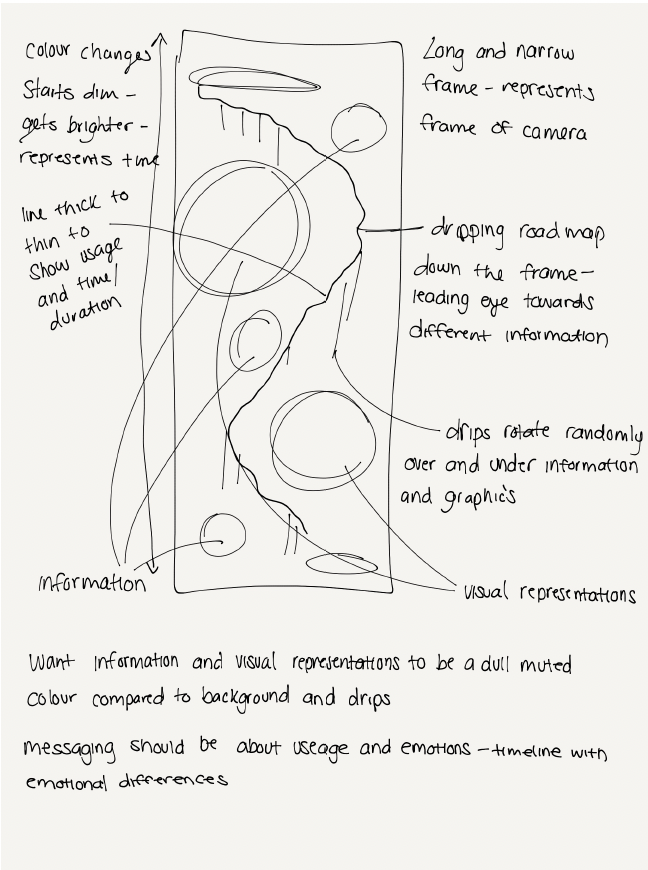 Colour changes
Starts dim -
gets brighter -
represents time
line thick to
thin to
show usage
and time/
duration
Long and narrow
frame - represents
frame of camera
dripping road map
down the frame-
leading eye towards
different information
drips rotate randomly
over and under information
and graphic's
information
visual representations
Want information and visual representations to be a dull muted
colour compared to background and drips
messaging should be about useage and emotions - timeline with
emotional differences